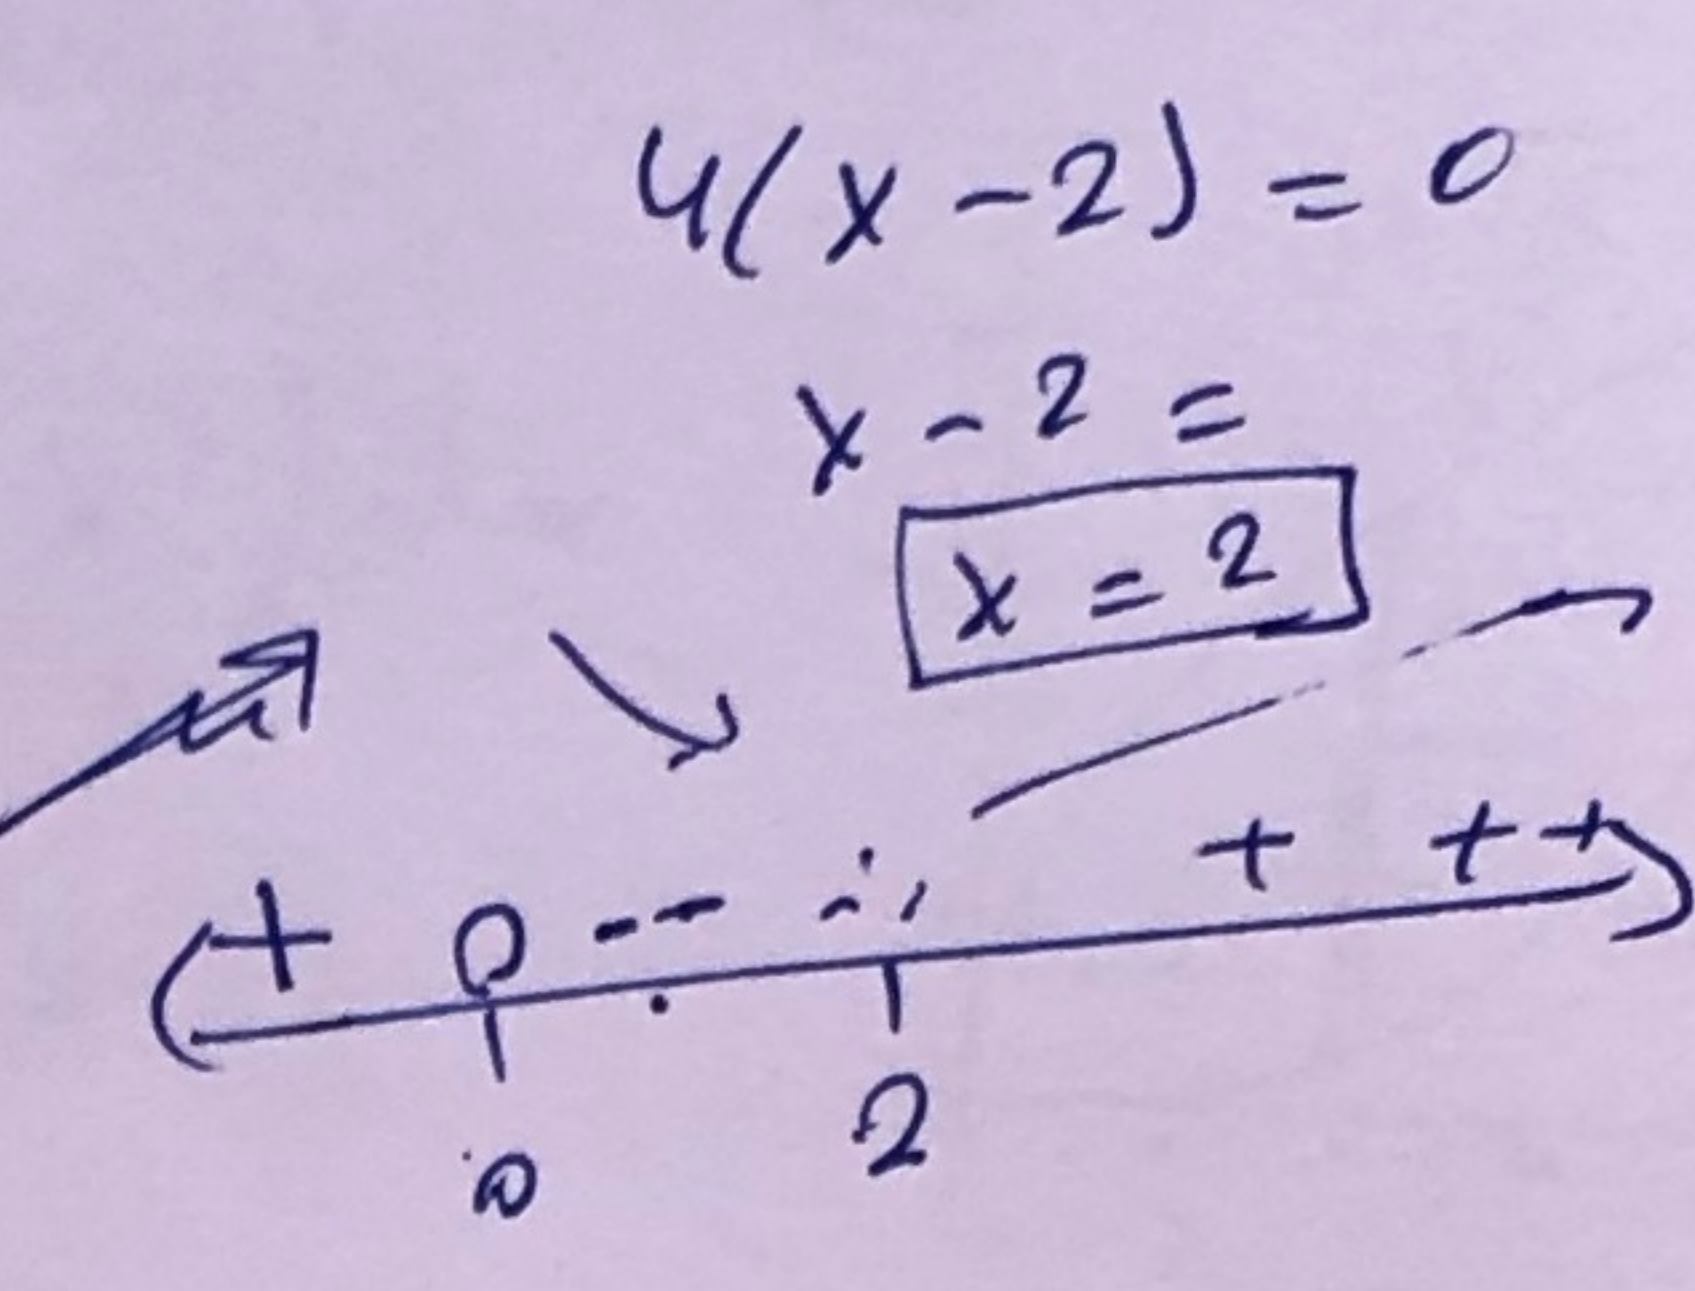 4(x-2) = 0
x - 2 =
x = 2
+ 0 -- - + + +
0 2